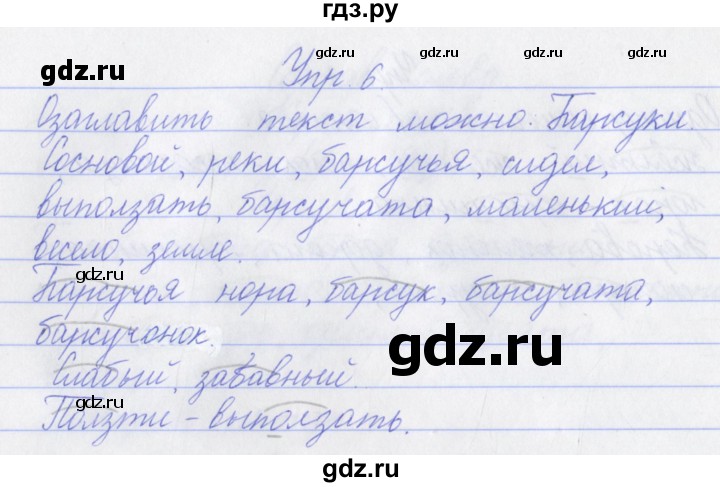 гдз.ру
gdz.ru
gdz.ru
gdz.ru
Упр. 6.
Озаглавить текст можно: Барсуки.
gdz.ru
gdz.ru
Сосновой, реки, барсучья, сидел,
выползать, барсучата, маленький,
весело, земле.
gdz.ru
gdz.ru
Барсучья нора, барсук, барсучата,
барсучонок.
gdz.ru
Слабый, забавный.
gdz.ru
Ползти - выползать.
gdz.ru